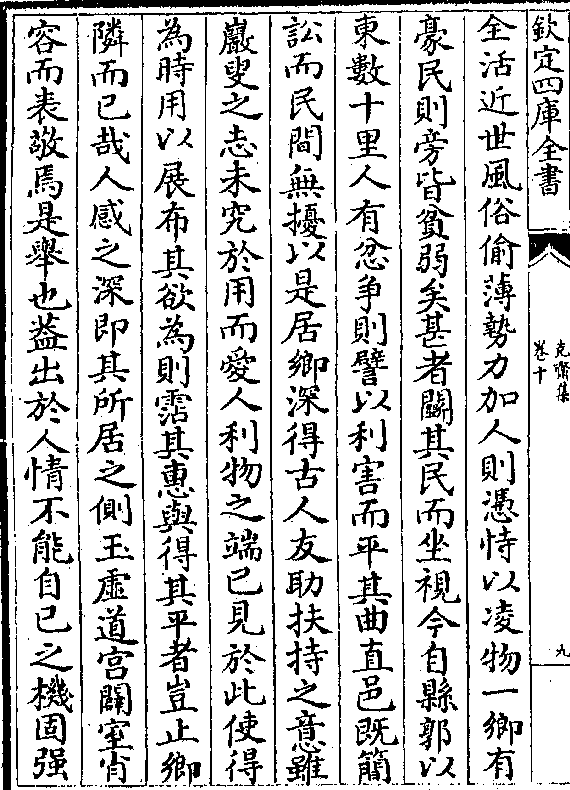 欽定四庫全書
克齋集
卷十
九
全活近世風俗偷薄勢力加人則憑恃以凌物一鄉有
豪民則旁皆貧弱矣甚者鬬其民而坐視今自縣郭以
東數十里人有忿争則譬以利害而平其曲直邑既簡
訟而民間無擾以是居鄉深得古人友助扶持之意雖
巖叟之志未究於用而愛人利物之端已見於此使得
為時用以展布其欲為則霑其惠與得其平者豈止鄉
隣而已哉人感之深即其所居之側玉虛道宫闢室肖
容而表敬焉是舉也葢出於人情不能自已之機固强